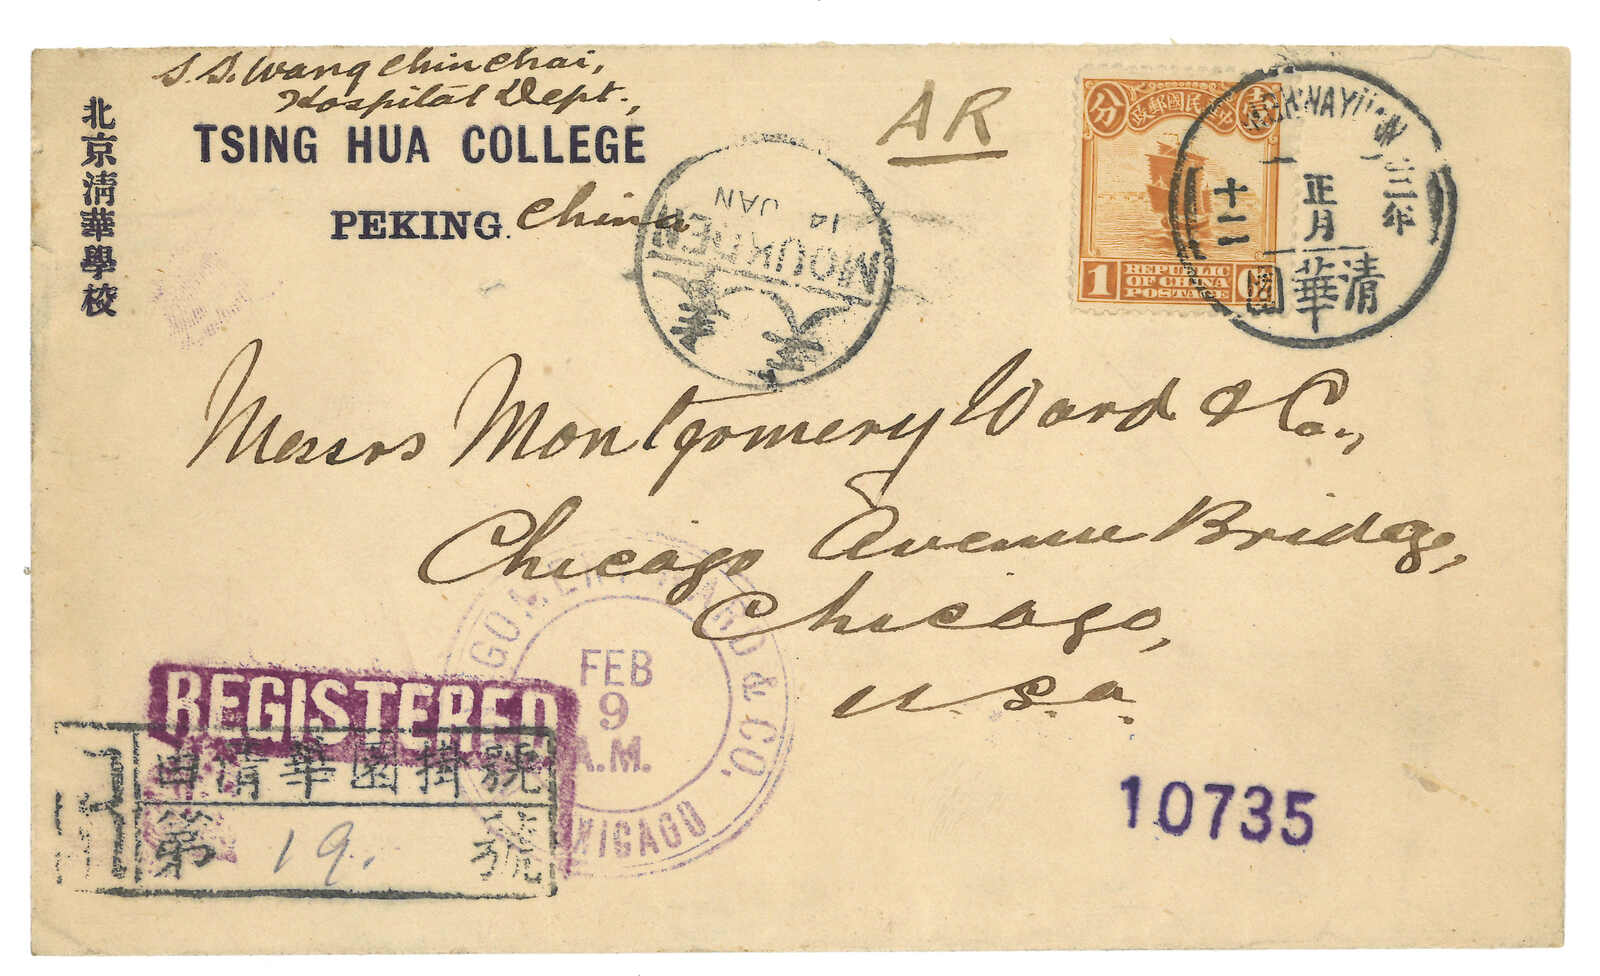 S. S. Wang Chin Chai,
Hospital Dept.,
TSING HUA COLLEGE
PEKING. China
北京清華學校
AR
MOUKDEN
14
JAN
奉天
分
中華民國郵政
壹
1
REPUBLIC
OF CHINA
POSTAGE
三年
正月
十二
清華園
Messrs Montgomery Ward & Co.,
Chicago Avenue Bridge,
Chicago,
U.S.a.
WARD & CO.
CHICAGO
FEB
9
A.M.
REGISTERED
R
由清華園掛號
第 19. 號
10735